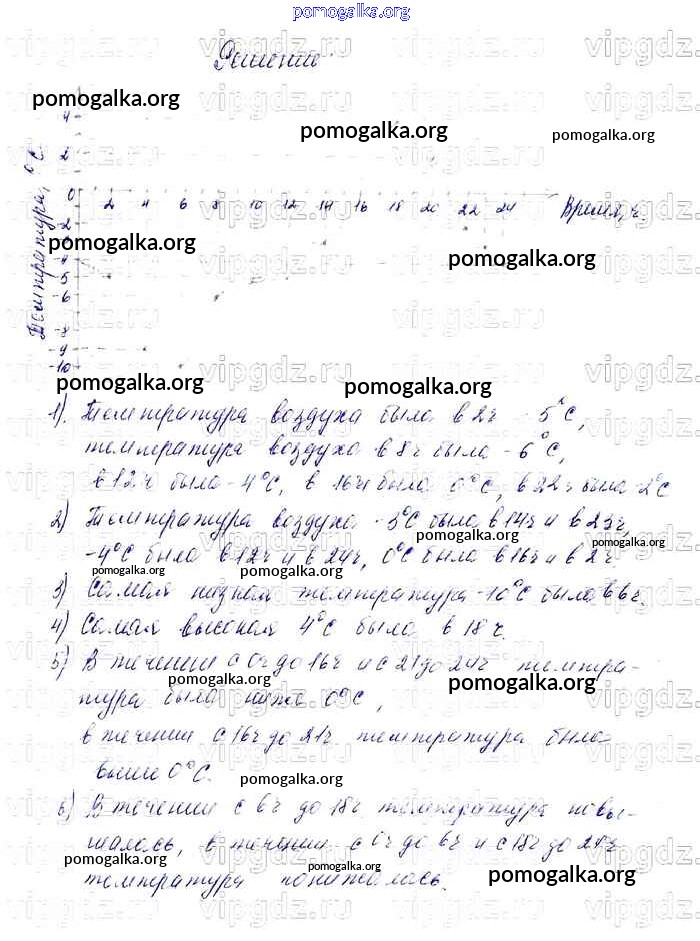 pomogalka.org
Решение
pomogalka.org
pomogalka.org
pomogalka.org
Температура, °С
4
2
0 2 4 6 8 10 12 14 16 18 20 22 24 Время, ч
-2
-4
-5
-6
-8
-9
-10
pomogalka.org
pomogalka.org
pomogalka.org
pomogalka.org
1). Температура воздуха была в 2ч -5°С,
температура воздуха в 8ч была -6°С,
в 12ч была -4°С, в 16ч была 0°С, в 22ч была -2°С
2) Температура воздуха -3°С была в 14ч и в 23ч,
pomogalka.org
pomogalka.org
-4°С была в 12ч и в 24ч, 0°С была в 16ч и в 2 ч
pomogalka.org
pomogalka.org
3) Самая низкая температура -10°С была в 6ч.
4) Самая высокая 4°С была в 18ч.
5) В течении с 0ч до 16ч и с 21 до 24ч темпра-
pomogalka.org
тура была ниже 0°С,
в течении с 16ч до 21ч температура была
выше 0°С.
pomogalka.org
6) В течении с 6ч до 18ч температура повы-
шалась, в течении с 0ч до 6ч и с 18ч до 24ч
pomogalka.org
pomogalka.org
pomogalka.org
температура понижалась.
vipgdz.ru